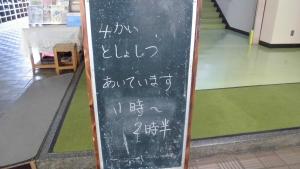 4かい
としょしつ
あいています
11時〜
2時半